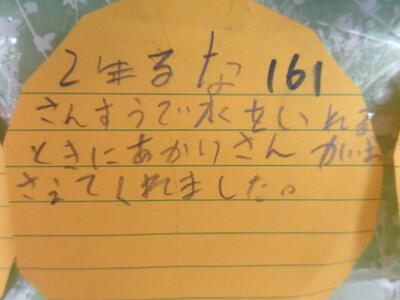 2年るな 161
さんすうで水をいれる
ときにあかりさんがいお
さえてくれました。